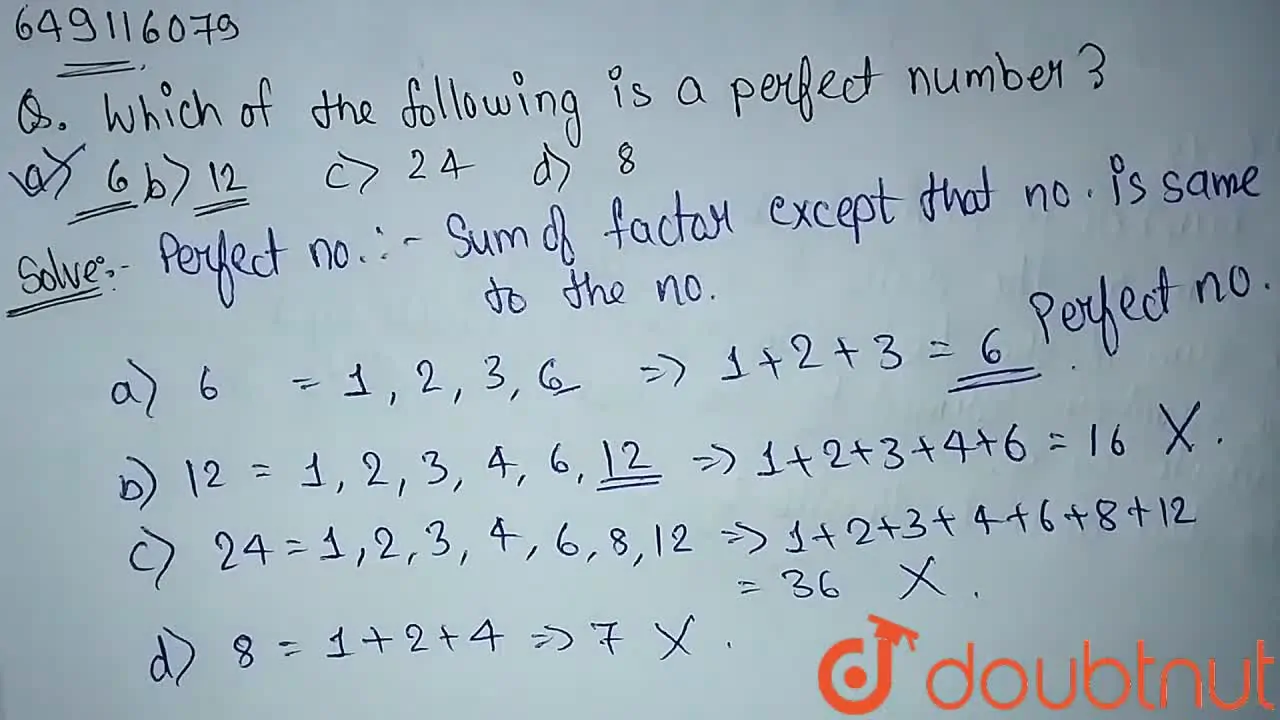 649116079
Q. Which of the following is a perfect number?
a) 6 b) 12 c) 24 d) 8
Solve:- Perfect no.:- Sum of factor except that no. is same
to the no.
a) 6 = 1, 2, 3, 6 => 1+2+3 = 6 Perfect no.
b) 12 = 1, 2, 3, 4, 6, 12 => 1+2+3+4+6 = 16 X.
c) 24 = 1, 2, 3, 4, 6, 8, 12 => 1+2+3+4+6+8+12
= 36 X.
d) 8 = 1+2+4 => 7 X.
doubtnut